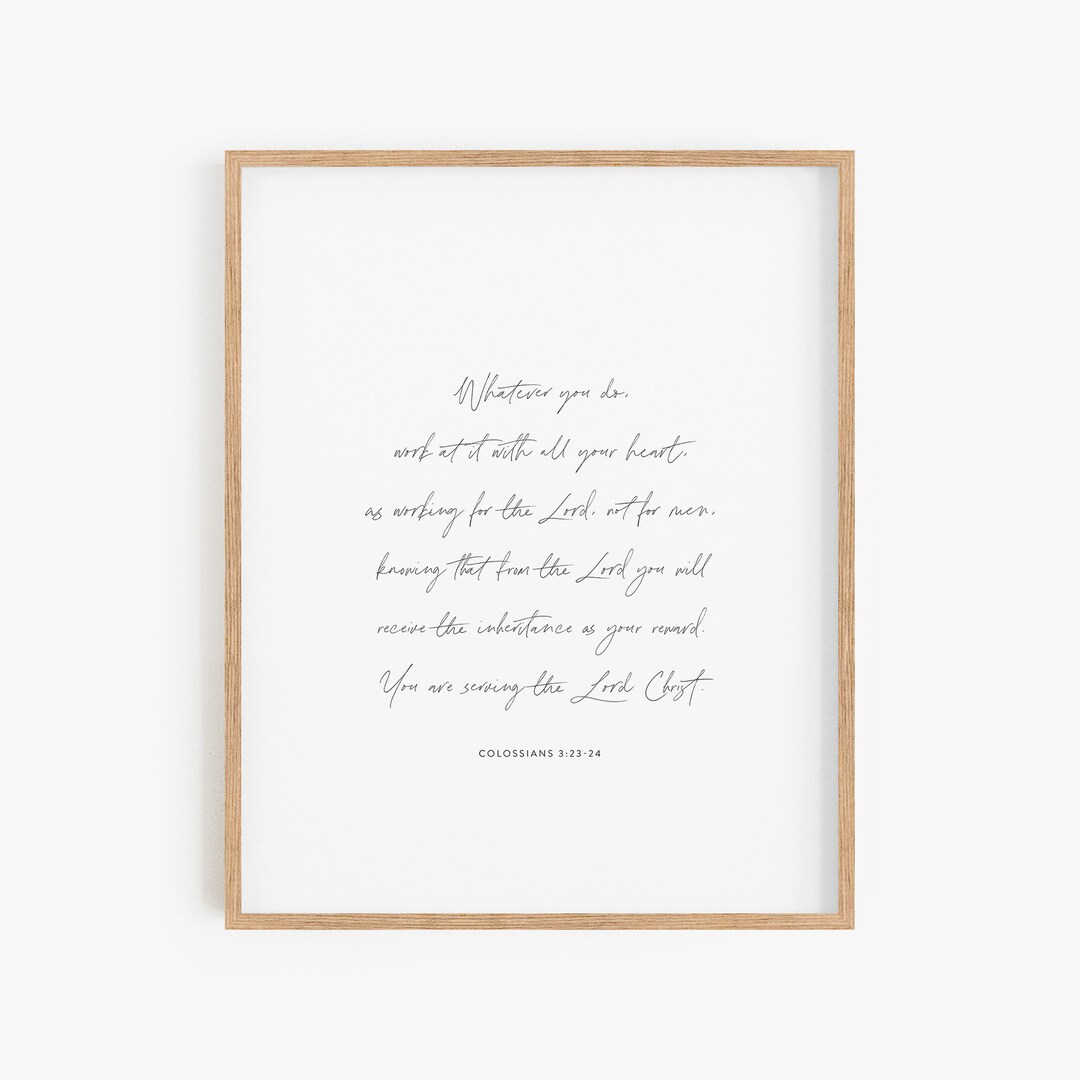 Whatever you do,
work at it with all your heart,
as working for the Lord, not for men,
knowing that from the Lord you will
receive the inheritance as your reward.
You are serving the Lord Christ.
COLOSSIANS 3:23-24